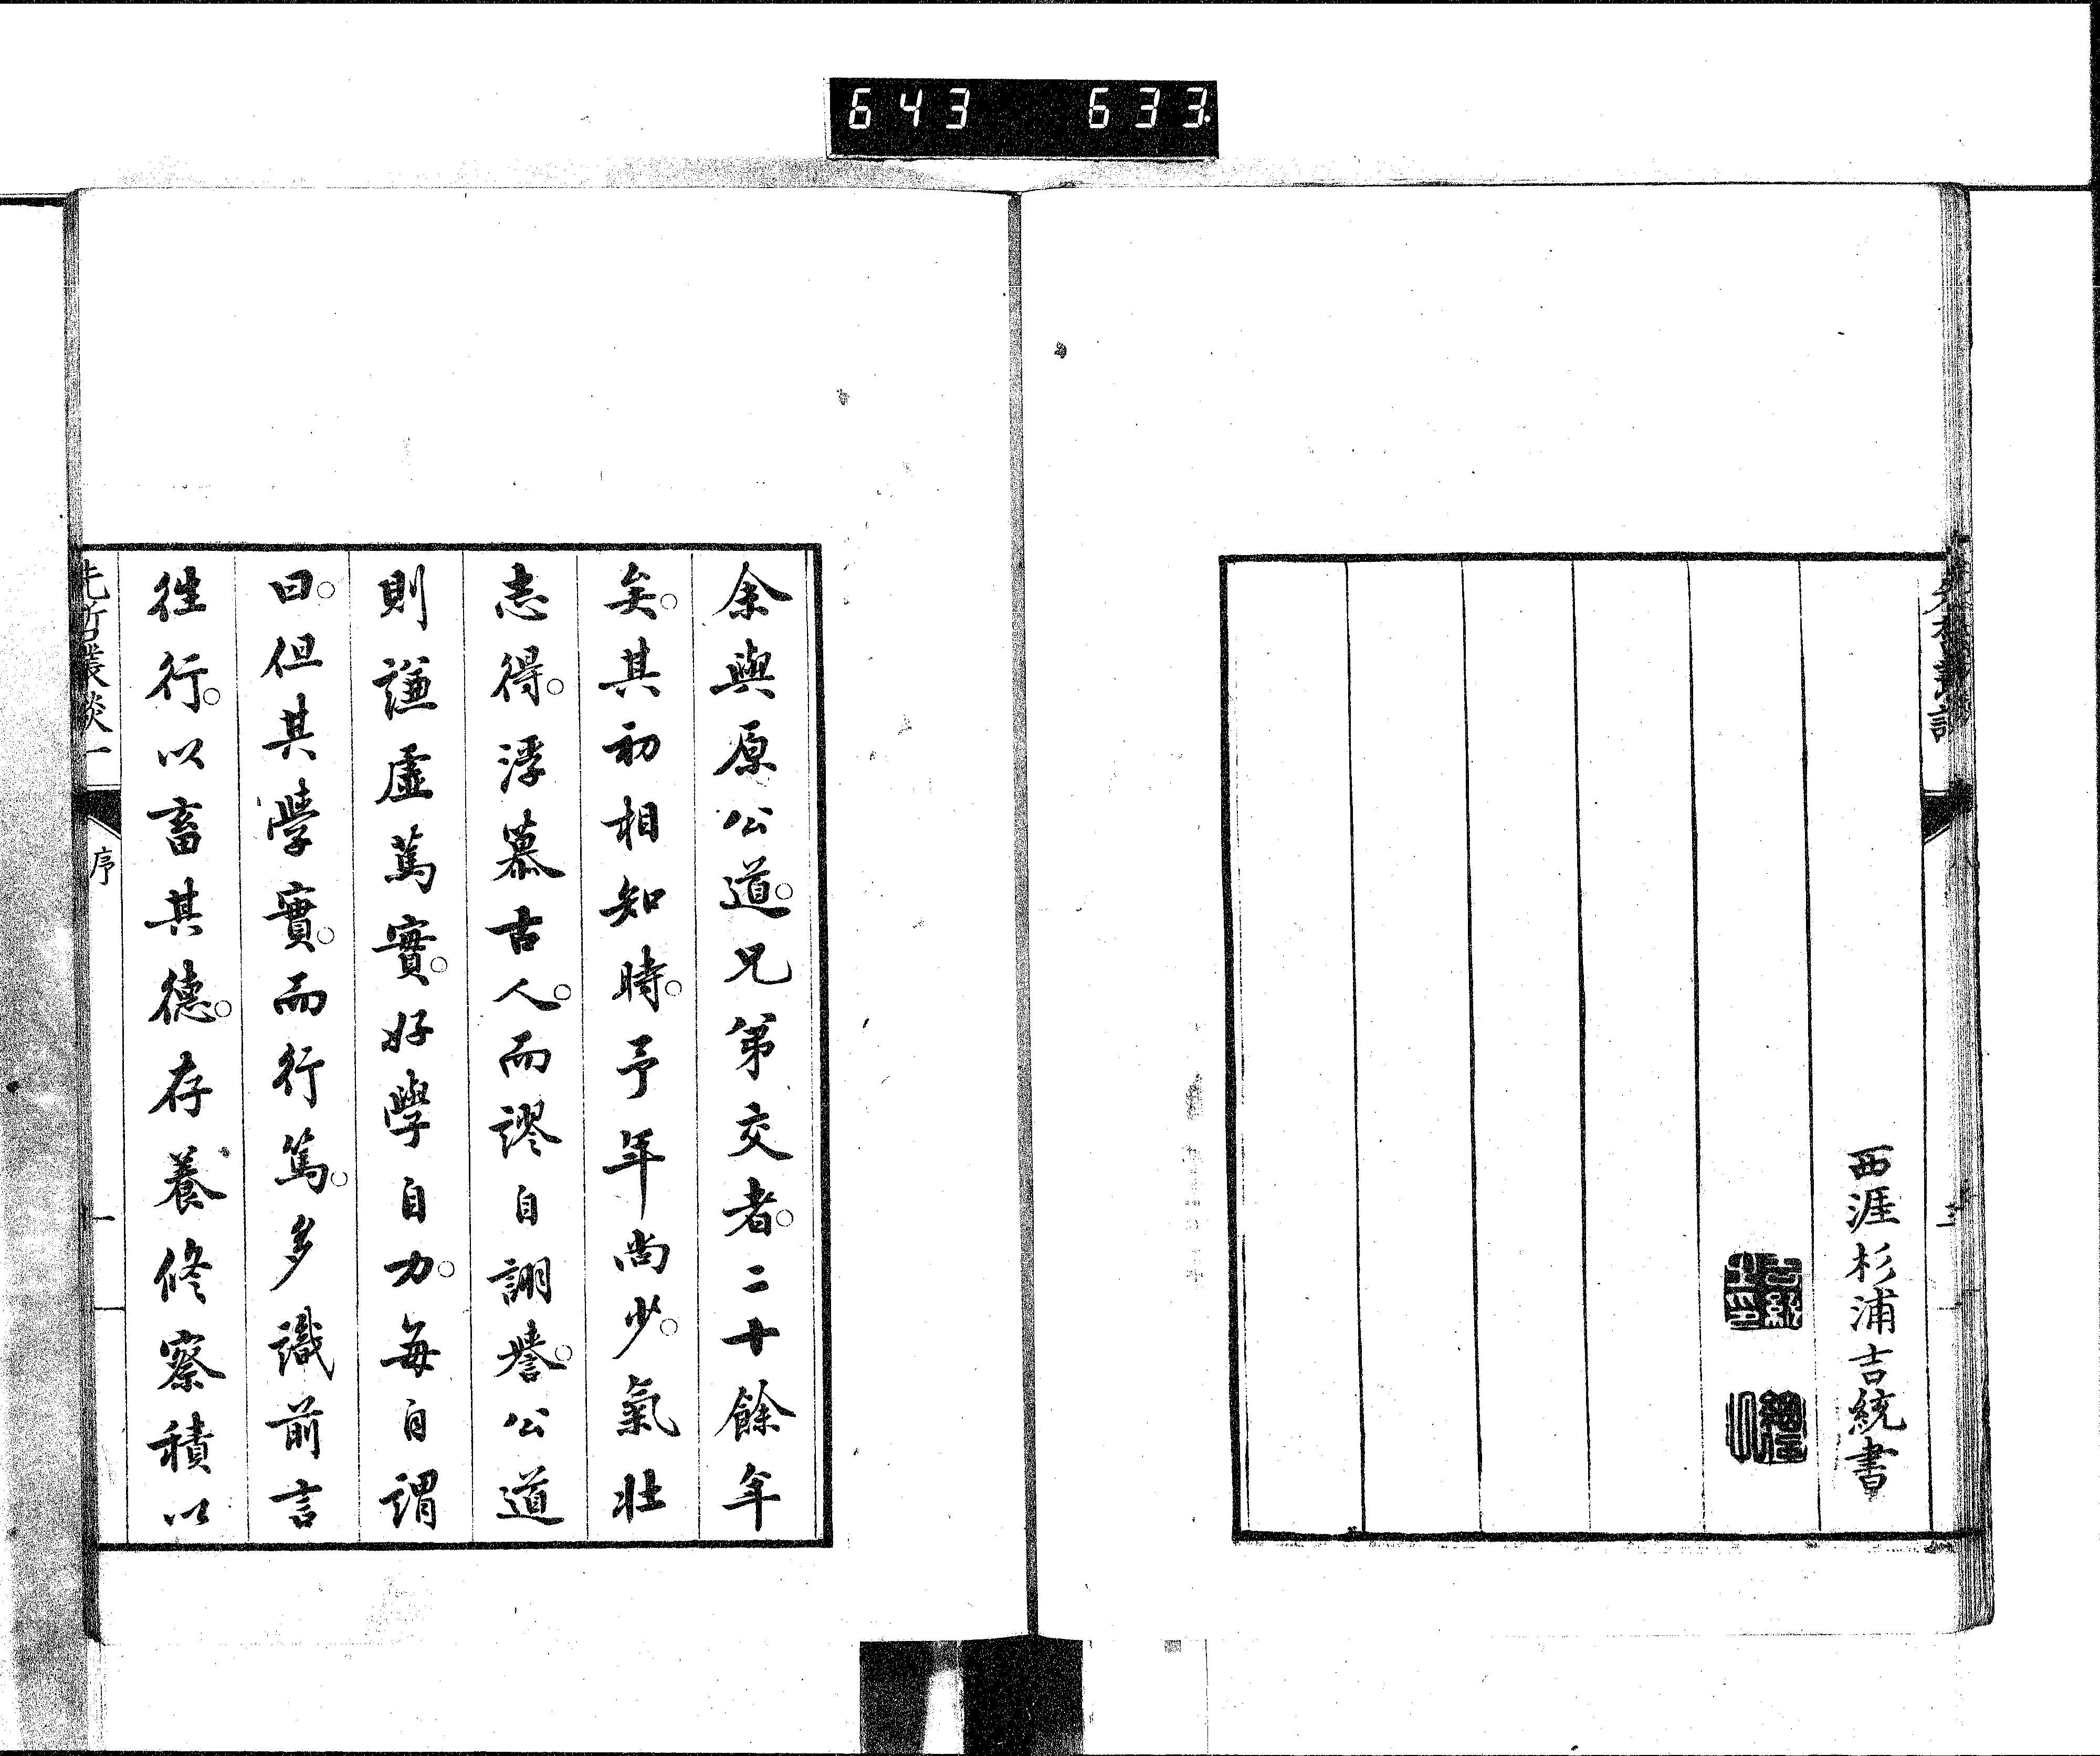 643 633
西涯杉浦吉統書
余與原公道。兄弟交者。二十餘年
矣。其初相知時。予年尚少。氣壯
志得。浮慕古人。而謬自詡譽。公道
則謙虛篤實。好學自力。每自謂
曰。但其學實。而行篤。多識前言
徃行。以畜其德。存養修察積以
先哲叢談一
序
一